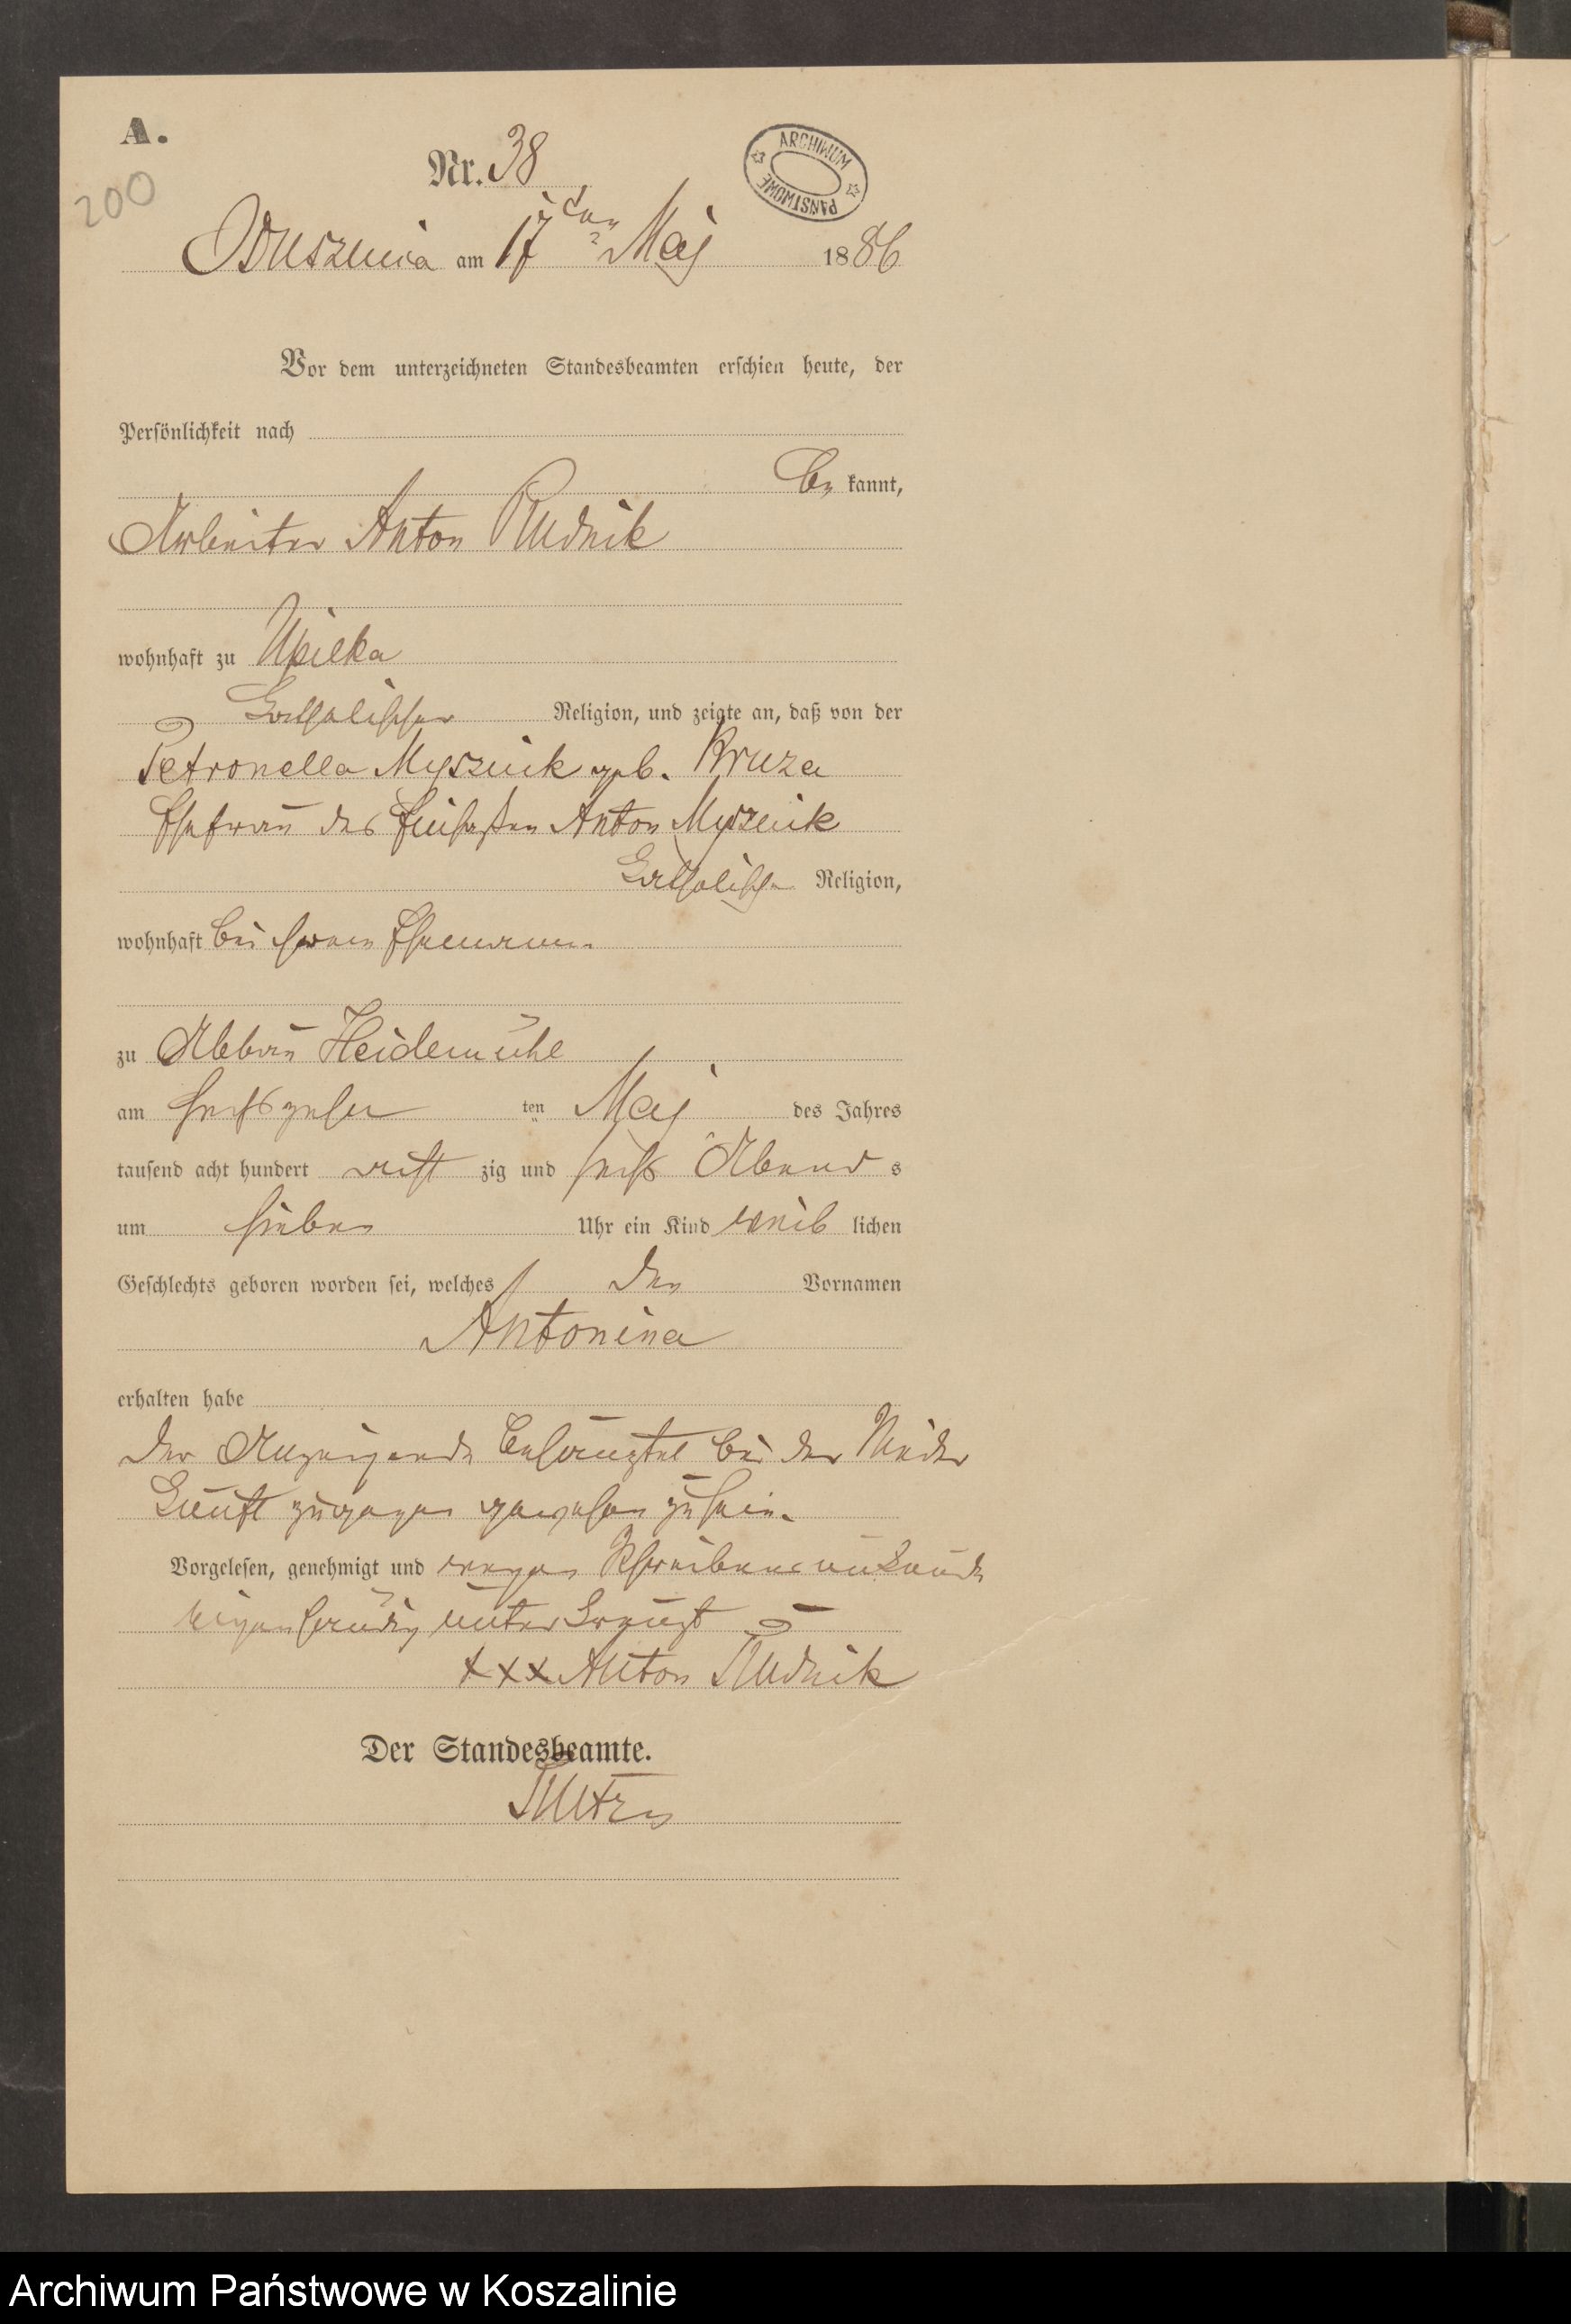 A.
Nr. 38
200
ARCHIWUM PAŃSTWOWE
Ośuszniça am 17 ten Maj 1886
Vor dem unterzeichneten Standesbeamten erschien heute, der
Persönlichkeit nach
be kannt,
Arbeiter Anton Rudnik
wohnhaft zu Upilka
katholischer Religion, und zeigte an, daß von der
Petronella Myszuik geb. Kruza
Ehefrau des Einsaßen Anton Myszuik
katholischer Religion,
wohnhaft bei ihrem Ehemann
zu Abbau Heidemühl
am sechszehn ten Maj des Jahres
tausend acht hundert acht zig und sechs Abend s
um sieben Uhr ein Kind weib lichen
Geschlechts geboren worden sei, welches den Vornamen
Antonina
erhalten habe
der Anzeigende behauptet bei der Nieder
kunft zugegen gewesen zu sein.
Vorgelesen, genehmigt und wegen Schreibensunkunde
eigenhändig unterkreuzt
xxx Anton Rudnik
Der Standesbeamte.
Archiwum Państwowe w Koszalinie